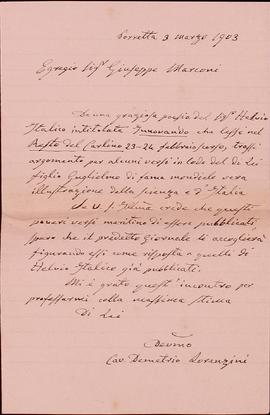 Porretta 3 marzo 1903
Egregio Sigr Giuseppe Marconi
Da una graziosa poesia del Sigr Helvio
Italico intitolata Innovando che lessi nel
Resto del Carlino 23-24 febbraio scorso, trassi
argomento per alcuni versi in lode del di Lei
figlio Guglielmo di fama mondiale vera
illustrazione della scienza e d'Italia
Se V. S. Ill. crede che questi
poveri versi meritino di essere pubblicati,
spero che il predetto Giornale li accoglierà
figurando essi come risposta a quelli di
Helvio Italico già pubblicati.
Mi è grato quest'incontro per
professarmi colla massima stima
Di Lei
Devmo
Cav. Demetrio Lorenzini